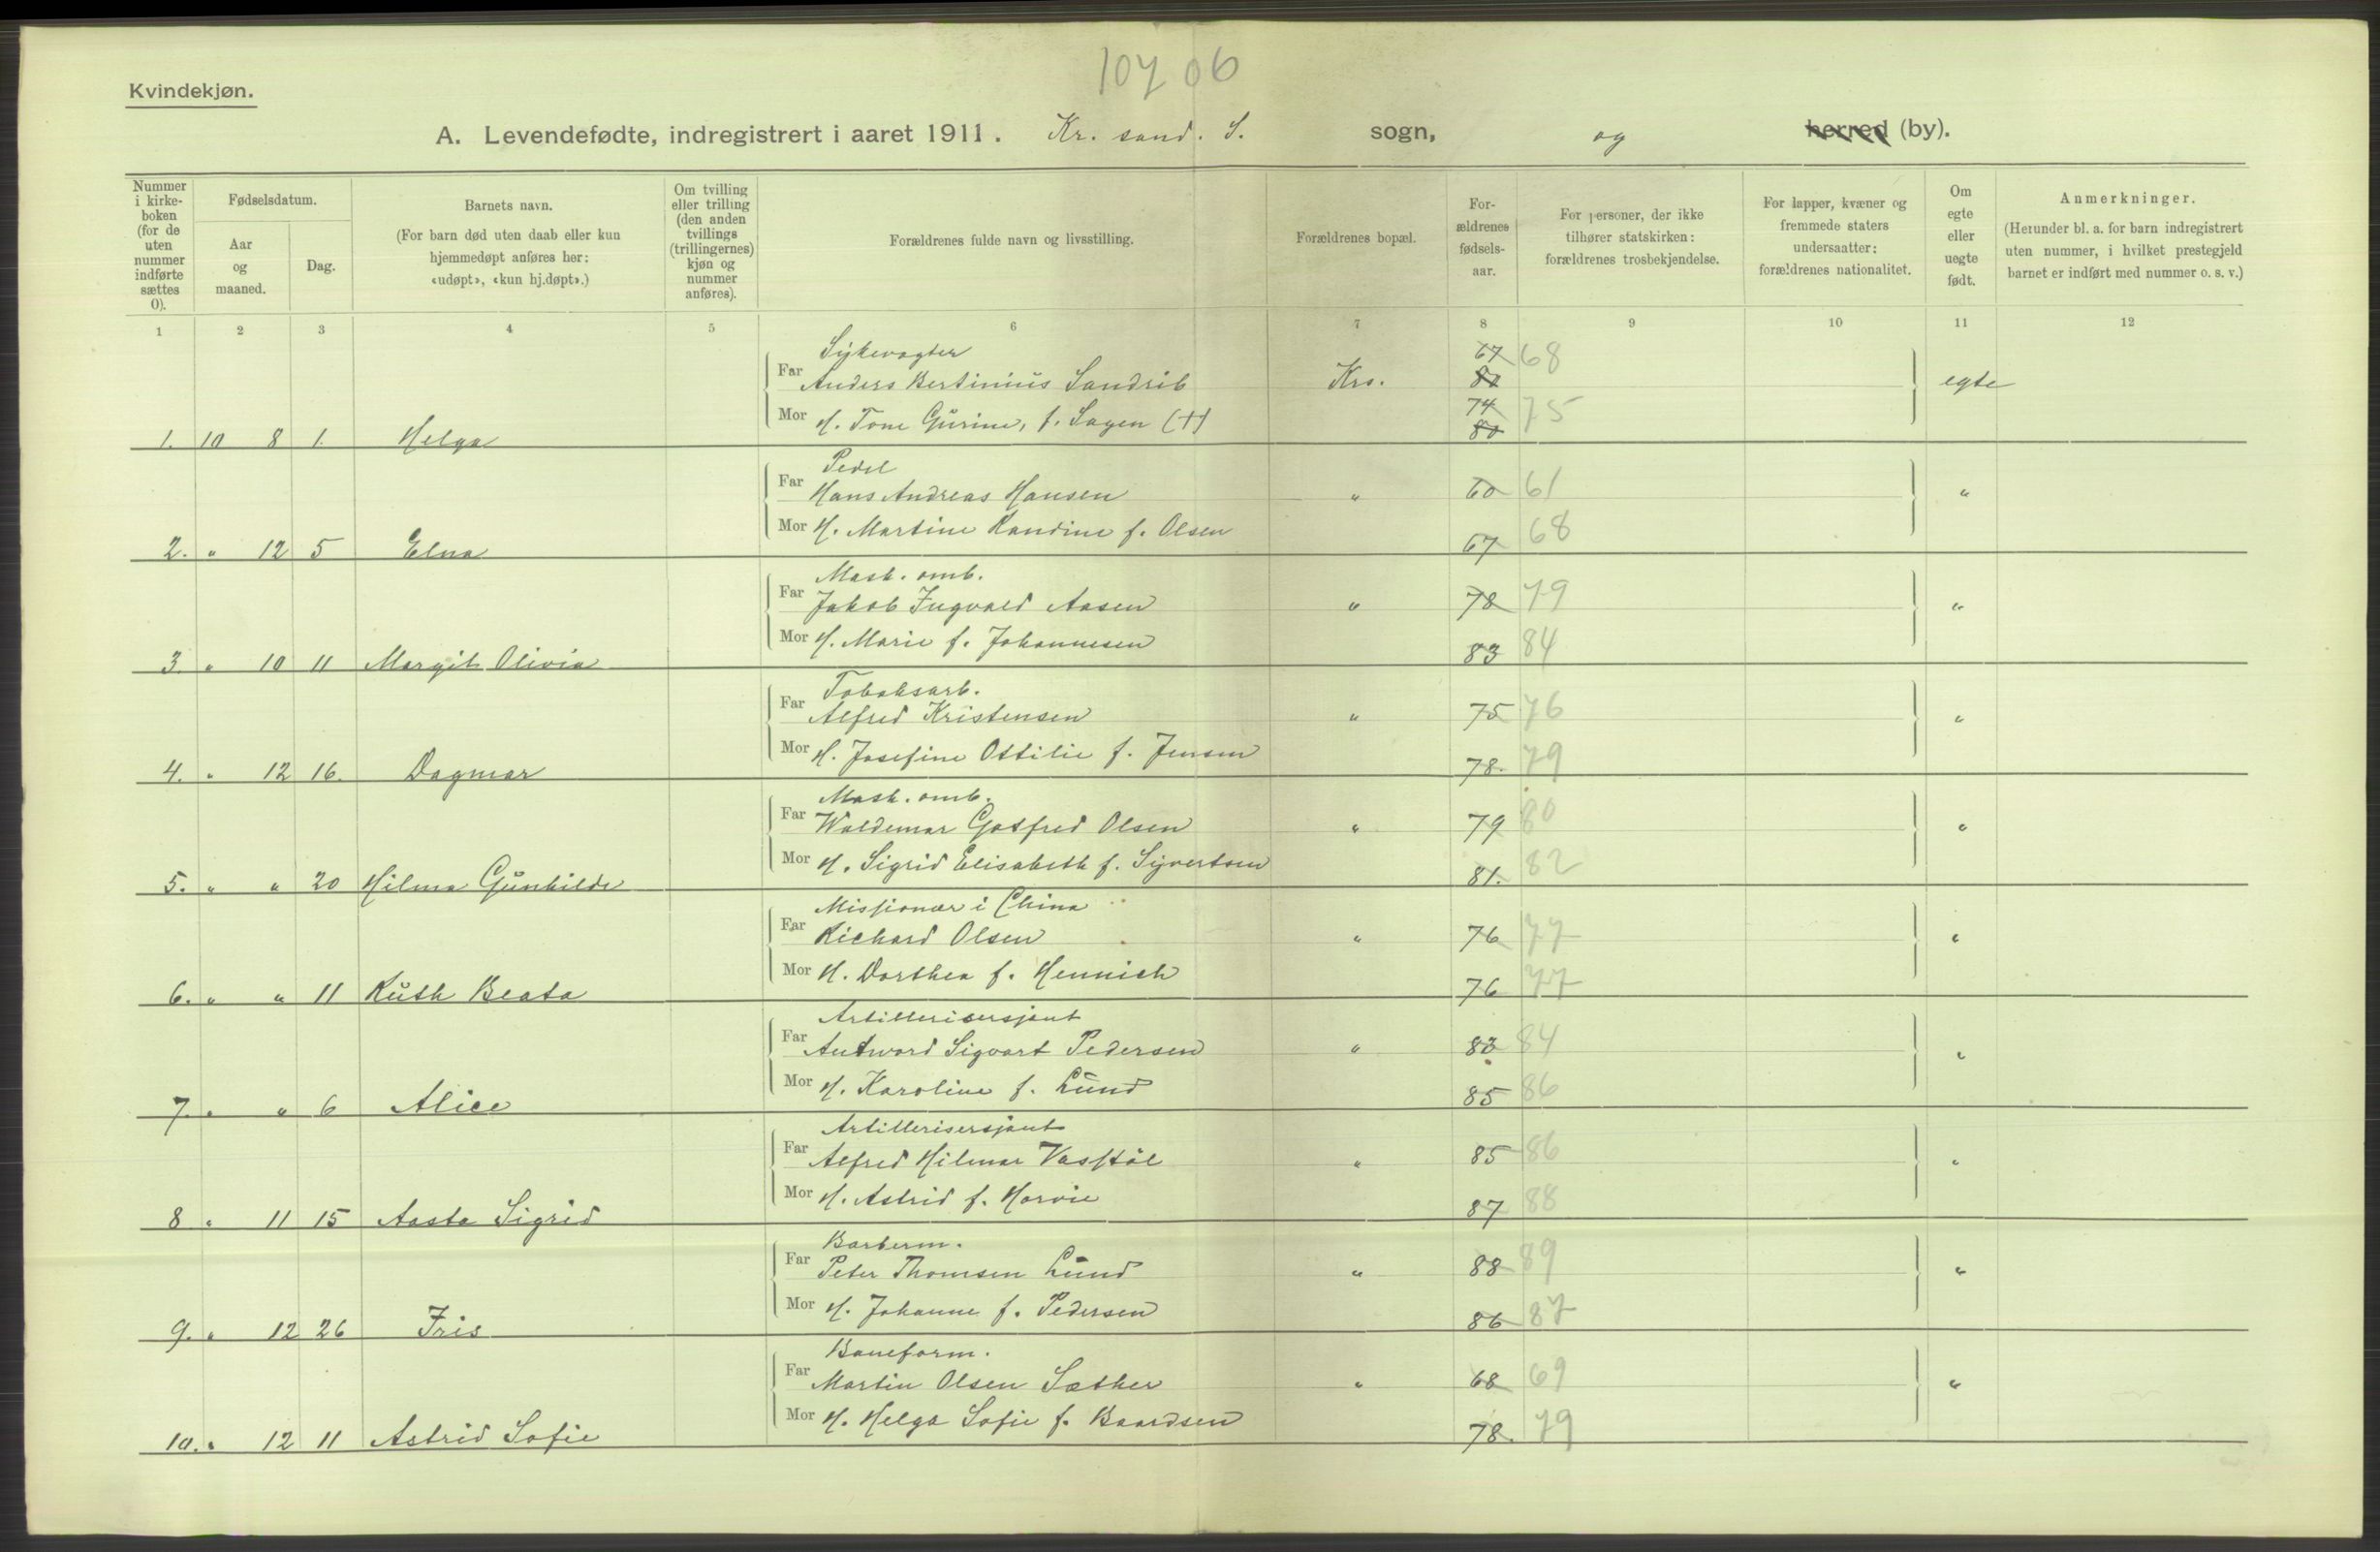 10706
Kvindekjøn.
A. Levendefødte, indregistrert i aaret 1911. Kr. sand. S. sogn, og herred (by).
Nummer i kirke-boken (for de uten nummer indførte sættes 0).
Fødselsdatum.
Aar og maaned.
Dag.
Barnets navn.
(For barn død uten daab eller kun hjemmedøpt anføres her: «udøpt», «kun hj.døpt».)
Om tvilling eller trilling (den anden tvillings (trillingernes) kjøn og nummer anføres).
Forældrenes fulde navn og livsstilling.
Forældrenes bopæl.
For-ældrenes fødsels-aar.
For personer, der ikke tilhører statskirken: forældrenes trosbekjendelse.
For lapper, kvæner og fremmede staters undersaatter: forældrenes nationalitet.
Om egte eller uegte født.
Anmerkninger.
(Herunder bl. a. for barn indregistrert uten nummer, i hvilket prestegjeld barnet er indført med nummer o. s. v.)
1 2 3 4 5 6 7 8 9 10 11 12
Sykevogter 67 68
Far Anders Bertinius Sandrib Krs. egte
74 75
Mor H. Tone Gurine, f. Sagen (†) 80
1. 10 8 1. Helga
Pedel
Far Hans Andreas Hansen " 60 61 "
Mor H. Martine Randine f. Olsen 67 68
2. " 12 5 Elna
Mask. omb.
Far Jakob Ingvald Aasen " 78 79 "
Mor H. Marie f. Johannesen 83 84
3. " 10 11 Margit Olivia
Tobaksarb.
Far Alfred Kristensen " 75 76 "
Mor H. Josefine Ottilie f. Jensen 78. 79
4. " 12 16. Dagmar
Mask. omb.
Far Waldemar Gotfred Olsen " 79 80 "
Mor H. Sigrid Elisabeth f. Syvertsen 81. 82
5. " " 20 Hilma Gunhilde
Missionær i China
Far Richard Olsen " 76 77 "
Mor H. Dorthea f. Hennich 76 77
6. " " 11 Ruth Beata
Artillerisersjant
Far Antword Sigvart Pedersen " 83 84 "
Mor H. Karoline f. Lund 85 86
7. " " 6 Alice
Artillerisersjant
Far Alfred Hilmar Vasstöl " 85 86 "
Mor H. Astrid f. Horvie 87 88
8 " 11 15 Aasta Sigrid
Barberm.
Far Peter Thomsen Lund " 88 89 "
Mor H. Johanne f. Pedersen 86 87
9. " 12 26 Iris
Baneform.
Far Martin Olsen Sæther " 68 69 "
Mor H. Helga Sofie f. Baardsen 78. 79
10. " 12 11 Astrid Sofie